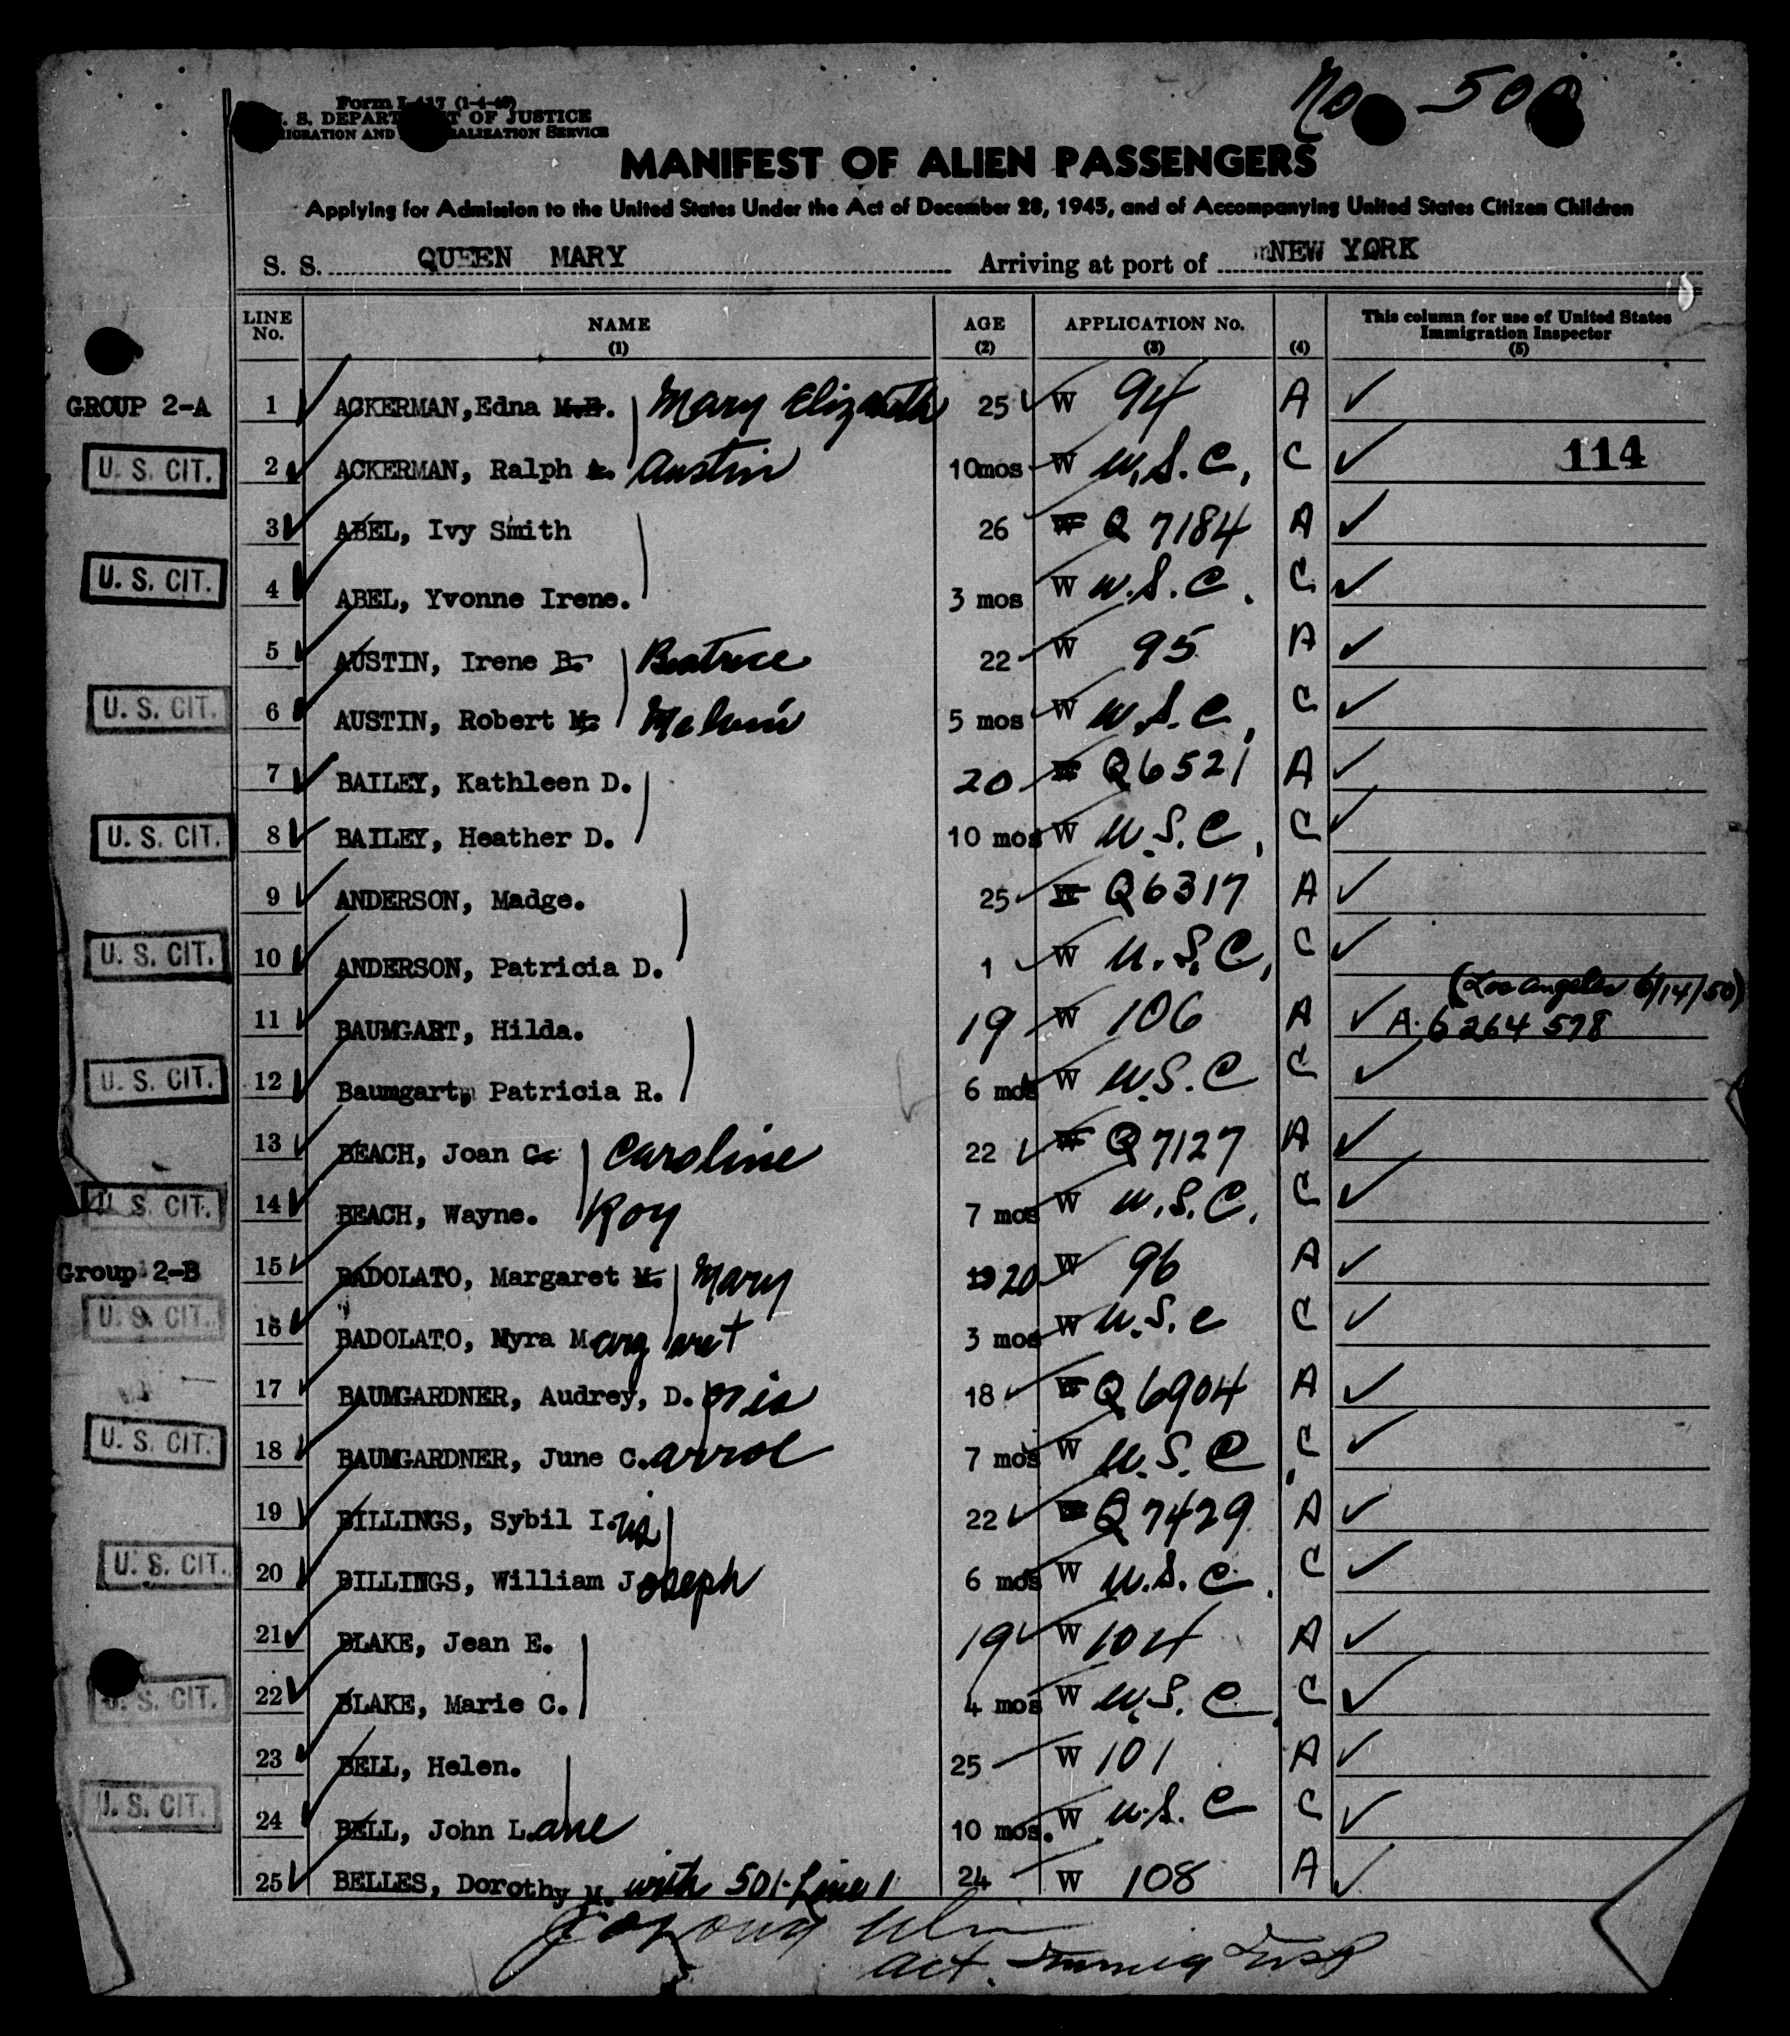 No 500
Form I-417 (1-4-46)
U. S. DEPARTMENT OF JUSTICE
IMMIGRATION AND NATURALIZATION SERVICE
MANIFEST OF ALIEN PASSENGERS
Applying for Admission to the United States Under the Act of December 28, 1945, and of Accompanying United States Citizen Children
S. S. QUEEN MARY Arriving at port of NEW YORK
LINE No. NAME (1) AGE (2) APPLICATION No. (3) (4) This column for use of United States Immigration Inspector (5)
GROUP 2-A 1 ACKERMAN, Edna M.E. Mary Elizabeth 25 W 94 A
U. S. CIT. 2 ACKERMAN, Ralph A. Austin 10mos W U.S.C. C 114
3 ABEL, Ivy Smith 26 W Q 7184 A
U. S. CIT. 4 ABEL, Yvonne Irene. 3 mos W U.S.C. C
5 AUSTIN, Irene B. Beatrice 22 W 95 A
U. S. CIT. 6 AUSTIN, Robert M. Melvin 5 mos W U.S.C. C
7 BAILEY, Kathleen D. 20 W Q6521 A
U. S. CIT. 8 BAILEY, Heather D. 10 mos W U.S.C. C
9 ANDERSON, Madge. 25 W Q6317 A
U. S. CIT. 10 ANDERSON, Patricia D. 1 W U.S.C. C
(Los Angeles 6/14/50)
11 BAUMGART, Hilda. 19 W 106 A A. 6 264 598
U. S. CIT. 12 Baumgart, Patricia R. 6 mos W U.S.C C
13 BEACH, Joan C. Caroline 22 W Q 7127 A
U. S. CIT. 14 BEACH, Wayne. Roy 7 mos W U.S.C. C
Group 2-B 15 BADOLATO, Margaret M. Mary 19 20 W 96 A
U. S. CIT. 16 BADOLATO, Myra Margaret 3 mos W U.S.C C
17 BAUMGARDNER, Audrey, D. oris 18 W Q 6904 A
U. S. CIT. 18 BAUMGARDNER, June C.arrol 7 mos W U.S.C C
19 BILLINGS, Sybil I.ris 22 W Q 7429 A
U. S. CIT. 20 BILLINGS, William Joseph 6 mos W U.S.C. C
21 BLAKE, Jean E. 19 W 104 A
U. S. CIT. 22 BLAKE, Marie C. 4 mos W U.S.C. C
23 BELL, Helen. 25 W 101 A
U. S. CIT. 24 BELL, John L.ane 10 mos. W U.S.C C
25 BELLES, Dorothy M. with 501-Line 1 24 W 108 A
Act. Immig Insp